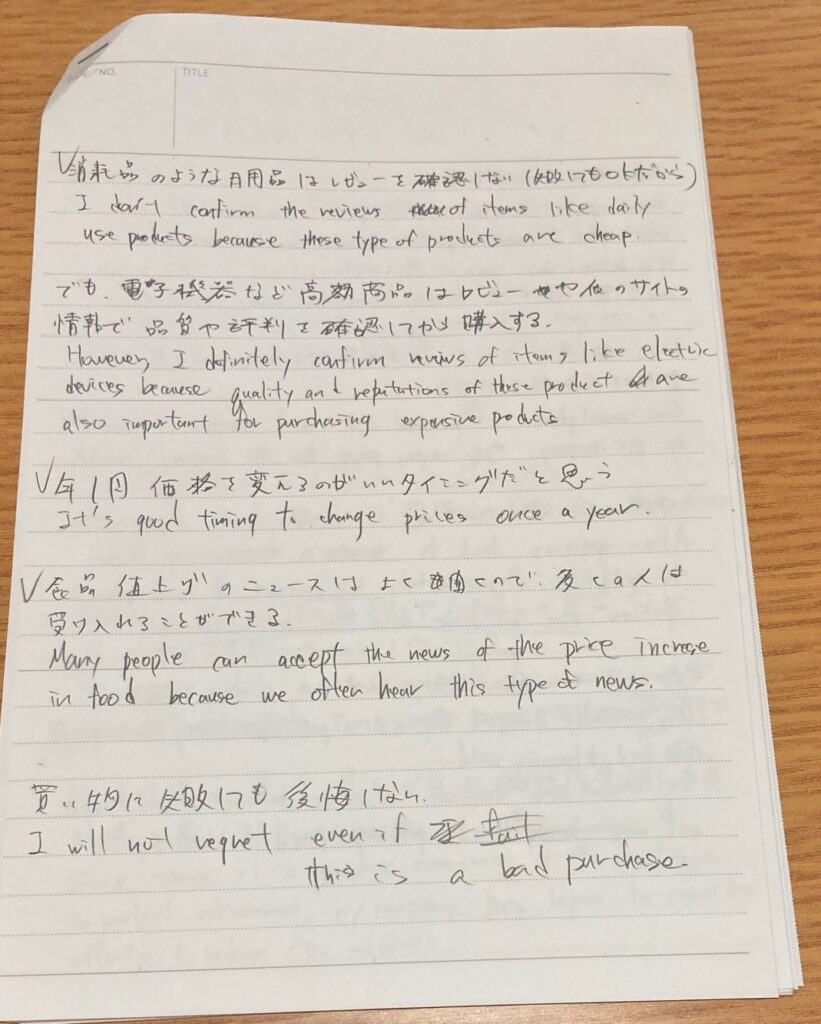 NO.
TITLE
消耗品のような日用品はレビューを確認しない(失敗してもOKだから)
I don't confirm the reviews of items like daily
use products because these type of products are cheap.
でも、電子機器など高額商品はレビューや他のサイトの
情報で品質や評判を確認してから購入する.
However, I definitely confirm reviws of items like electric
devices because quality and reputations of these product are
also important for purchasing expensive poducts
年1回 価格を変えるのがいいタイミングだと思う
It's good timing to change prices once a year.
食品 値上げのニュースはよく聞くので、多くの人は
受け入れることができる.
Many people can accept the news of the price increse
in food because we often hear this type of news.
買い物に失敗しても後悔しない.
I will not regret even if
this is a bad purchase.